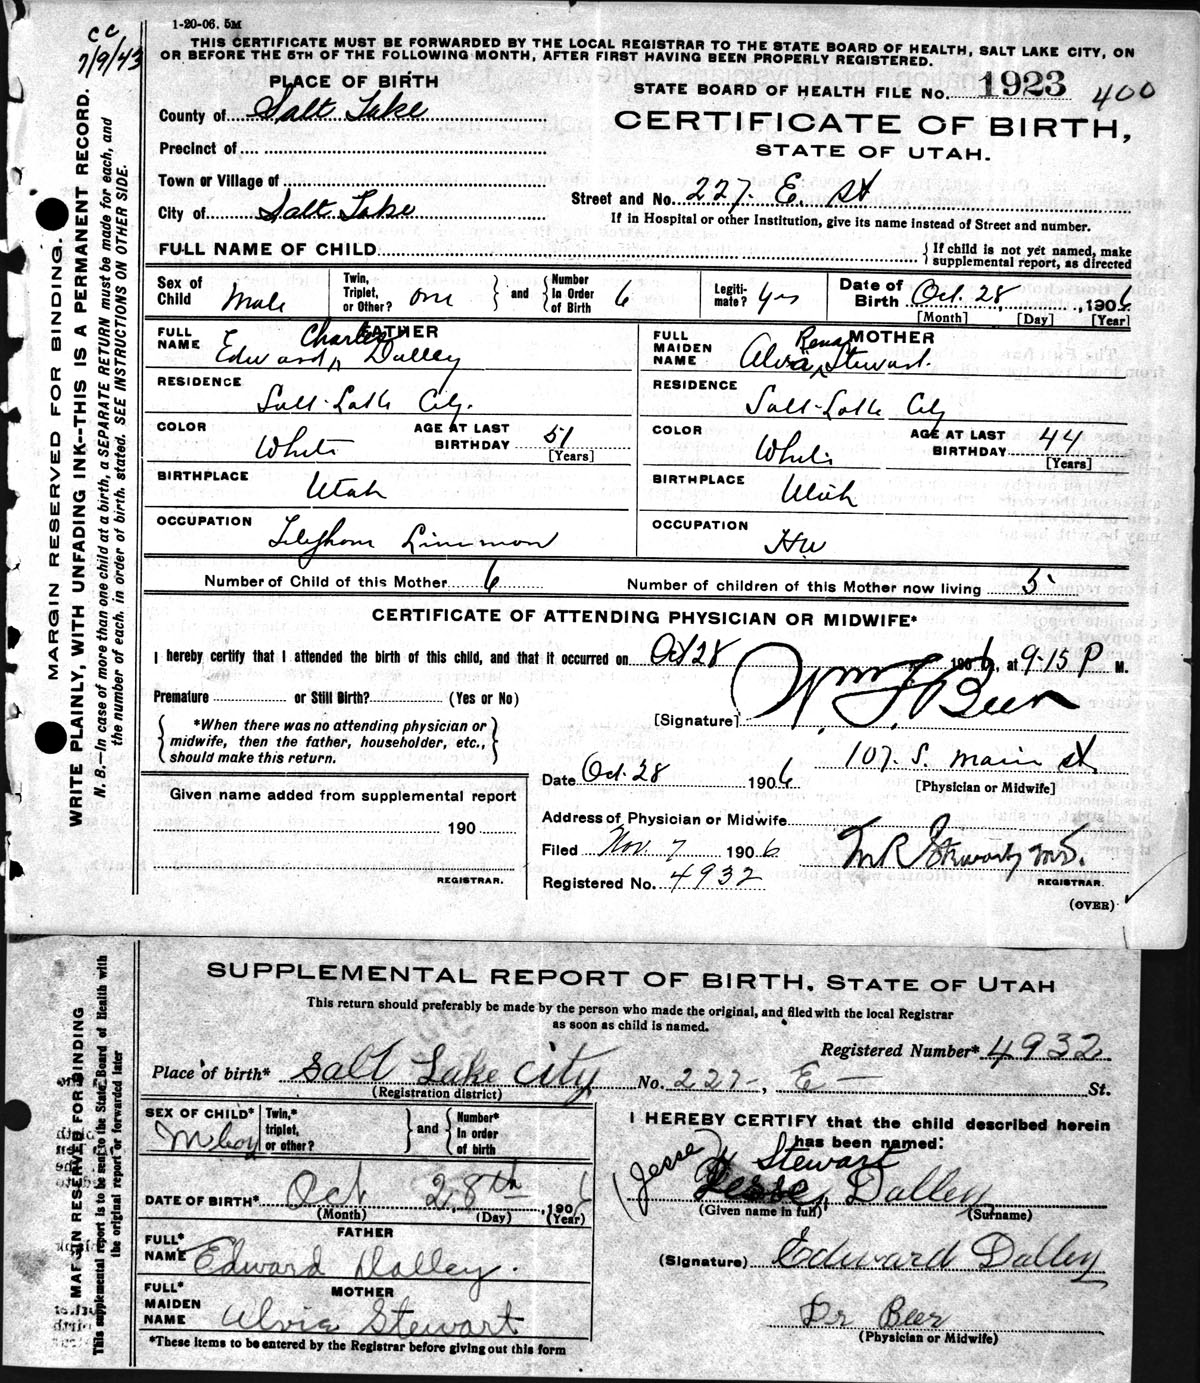 1-20-06. 5M
CC
7/9/43
THIS CERTIFICATE MUST BE FORWARDED BY THE LOCAL REGISTRAR TO THE STATE BOARD OF HEALTH, SALT LAKE CITY, ON
OR BEFORE THE 5TH OF THE FOLLOWING MONTH, AFTER FIRST HAVING BEEN PROPERLY REGISTERED.
PLACE OF BIRTH
STATE BOARD OF HEALTH FILE No. 1923 400
County of Salt Lake
CERTIFICATE OF BIRTH,
STATE OF UTAH.
Precinct of
Town or Village of
Street and No. 227. E. st
City of Salt Lake
If in Hospital or other Institution, give its name instead of Street and number.
FULL NAME OF CHILD
If child is not yet named, make
supplemental report, as directed
Sex of Child Male
Twin, Triplet, or Other? one and Number In Order of Birth 6
Legiti-mate? Yes
Date of Birth Oct. 28, 1906
[Month] [Day] [Year]
FULL NAME FATHER
Charles
Edward Dalley
FULL MAIDEN NAME MOTHER
Rena
Alvia Stewart.
RESIDENCE
Salt-Lake City.
RESIDENCE
Salt-Lake City
COLOR White
AGE AT LAST BIRTHDAY 51
[Years]
COLOR White
AGE AT LAST BIRTHDAY 44
[Years]
BIRTHPLACE
Utah
BIRTHPLACE
Utah
OCCUPATION
Telephone Lineman
OCCUPATION
HW
Number of Child of this Mother 6
Number of children of this Mother now living 5
CERTIFICATE OF ATTENDING PHYSICIAN OR MIDWIFE*
I hereby certify that I attended the birth of this child, and that it occurred on Oct 28 1906, at 9-15 P M.
Premature or Still Birth? (Yes or No)
[Signature] Wm F. Beer
*When there was no attending physician or
midwife, then the father, householder, etc.,
should make this return.
Date Oct. 28 1906
107. S. Main st
[Physician or Midwife]
Given name added from supplemental report
190
REGISTRAR.
Address of Physician or Midwife
Filed Nov. 7 1906
M R Stewart, M.D.
Registered No. 4932
REGISTRAR.
(OVER)
MARGIN RESERVED FOR BINDING.
WRITE PLAINLY, WITH UNFADING INK--THIS IS A PERMANENT RECORD.
N. B.—In case of more than one child at a birth, a SEPARATE RETURN must be made for each, and
the number of each, in order of birth, stated. SEE INSTRUCTIONS ON OTHER SIDE.
SUPPLEMENTAL REPORT OF BIRTH, STATE OF UTAH
This return should preferably be made by the person who made the original, and filed with the local Registrar
as soon as child is named.
Registered Number* 4932
Place of birth* Salt Lake City No. 227-, E- St.
(Registration district)
SEX OF CHILD*
M boy
Twin,* triplet, or other? and Number* In order of birth
I HEREBY CERTIFY that the child described herein
has been named:
(Jesse) Stewart
Jesse, Dalley
(Given name in full) (Surname)
DATE OF BIRTH* Oct 28th, 1906
(Month) (Day) (Year)
FATHER
FULL* NAME Edward Dalley.
(Signature) Edward Dalley
MOTHER
FULL* MAIDEN NAME Alvia Stewart
Dr Beer
(Physician or Midwife)
*These items to be entered by the Registrar before giving out this form
MARGIN RESERVED FOR BINDING
This supplemental report is to be sent to the State Board of Health with
the original report or forwarded later